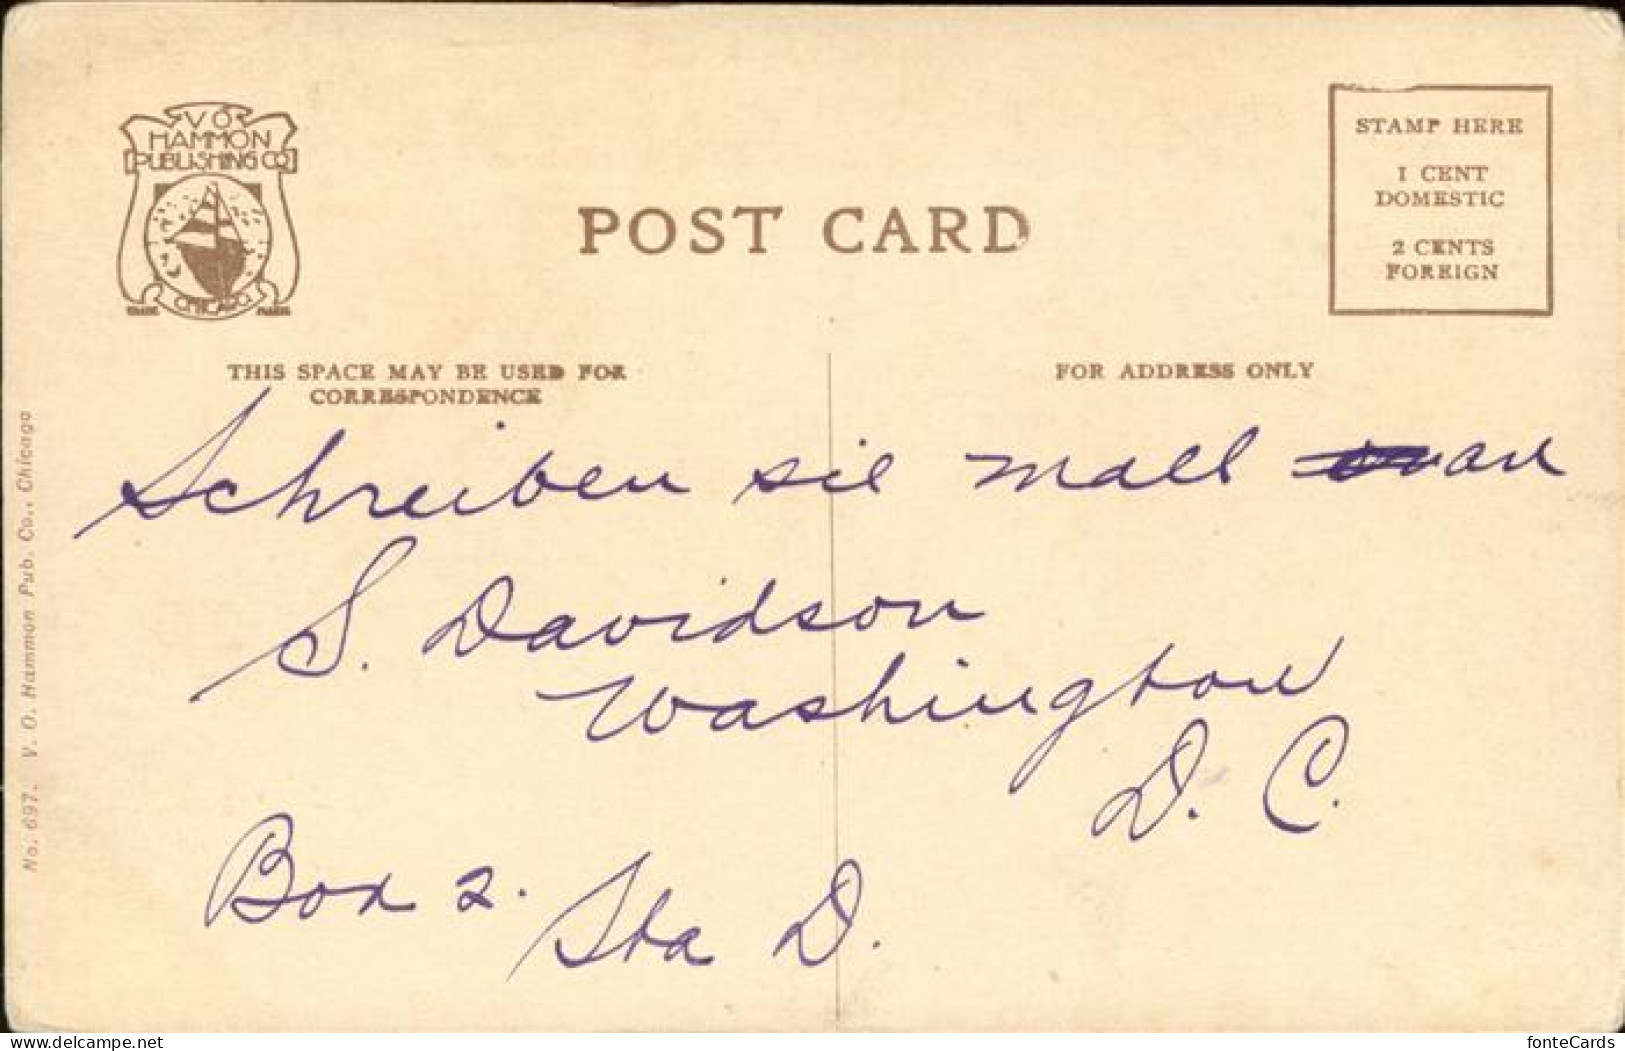 V O
HAMMON
PUBLISHING CO
CHICAGO.
TRADE MARK
POST CARD
STAMP HERE
1 CENT
DOMESTIC
2 CENTS
FOREIGN
THIS SPACE MAY BE USED FOR
CORRESPONDENCE
FOR ADDRESS ONLY
No. 697. V. O. Hammon Pub. Co., Chicago
Schreiben sie mall an
S. Davidson
Washington
D. C.
Box 2. Sta D.
www.delcampe.net
fonteCards